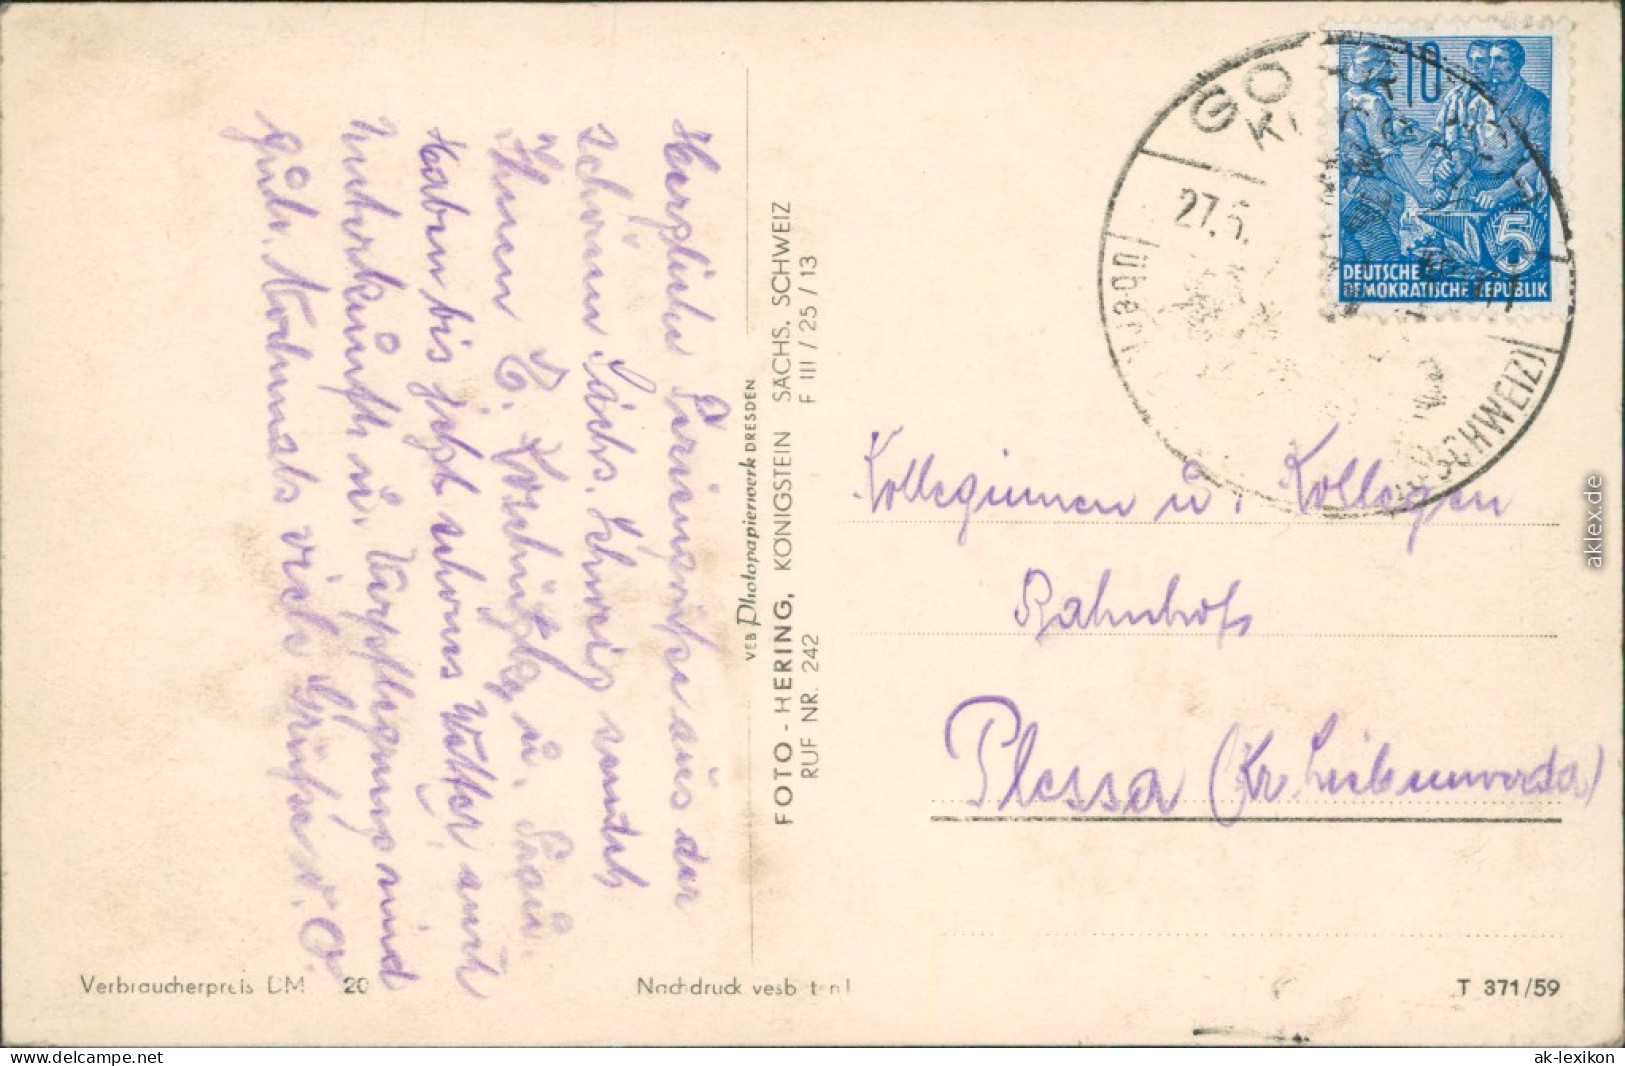 Herzliche Feriengrüße aus der
schönen Sächs. Schweiz sendet
Ihnen E. u. Frau.
Haben bis jetzt schönes Wetter, auch
Unterkunft u. Verpflegung sind
gut. Nochmals viele Grüße d. O.
VEB Photopapierwerk DRESDEN
FOTO - HERING, KÖNIGSTEIN SÄCHS. SCHWEIZ
RUF NR. 242 F III / 25 / 13
10
5
DEUTSCHE
DEMOKRATISCHE REPUBLIK
GO
27.6.
(über
SCHWEIZ)
Kolleginnen u. Kollegen
Bahnhof
Plessa (Kr. Liebenwerda)
Verbraucherpreis DM 20
Nachdruck verboten!
T 371/59
aklex.de
www.delcampe.net
ak-lexikon